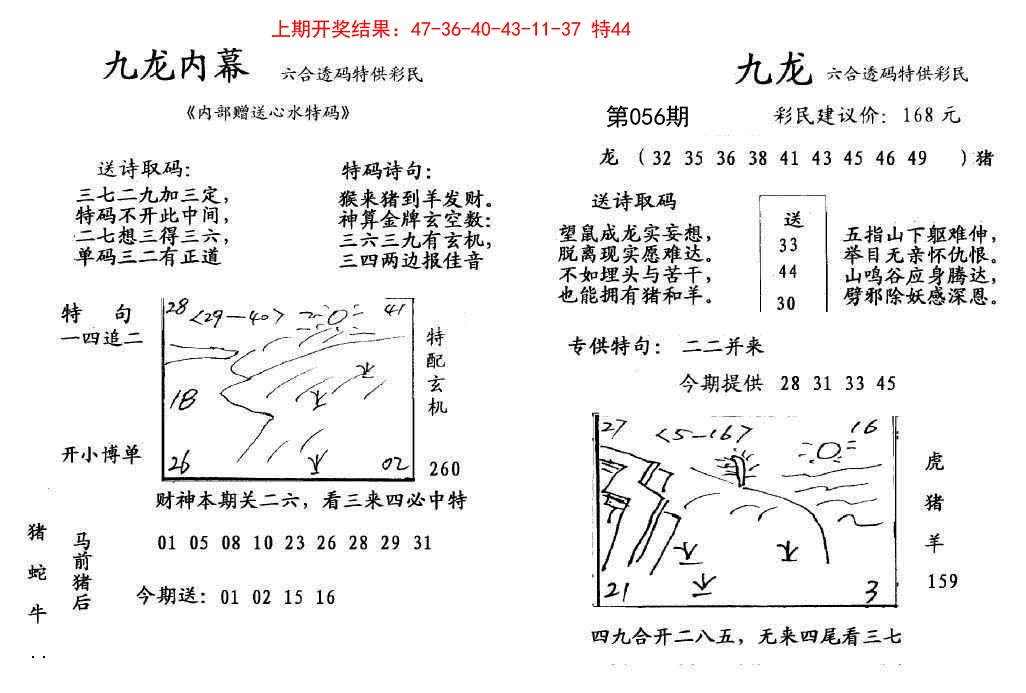 上期开奖结果：47-36-40-43-11-37 特44
九龙内幕 六合透码特供彩民
《内部赠送心水特码》
送诗取码：
三七二九加三定，
特码不开此中间，
二七想三得三六，
单码三二有正道
特码诗句：
猴来猪到羊发财。
神算金牌玄空数：
三六三九有玄机，
三四两边报佳音
特 句
一四追二
开小博单
28
<29—40>
41
18
26
02
特配玄机
260
财神本期关二六，看三来四必中特
猪
蛇
牛
马前猪后
01 05 08 10 23 26 28 29 31
今期送：01 02 15 16
九龙 六合透码特供彩民
第056期 彩民建议价：168元
龙（32 35 36 38 41 43 45 46 49 ）猪
送诗取码
望鼠成龙实妄想，
脱离现实愿难达。
不如埋头与苦干，
也能拥有猪和羊。
送
33
44
30
五指山下躯难伸，
举目无亲怀仇恨。
山鸣谷应身腾达，
劈邪除妖感深恩。
专供特句： 二二并来
今期提供 28 31 33 45
27
<5—16>
16
21
3
虎
猪
羊
159
四九合开二八五，无来四尾看三七